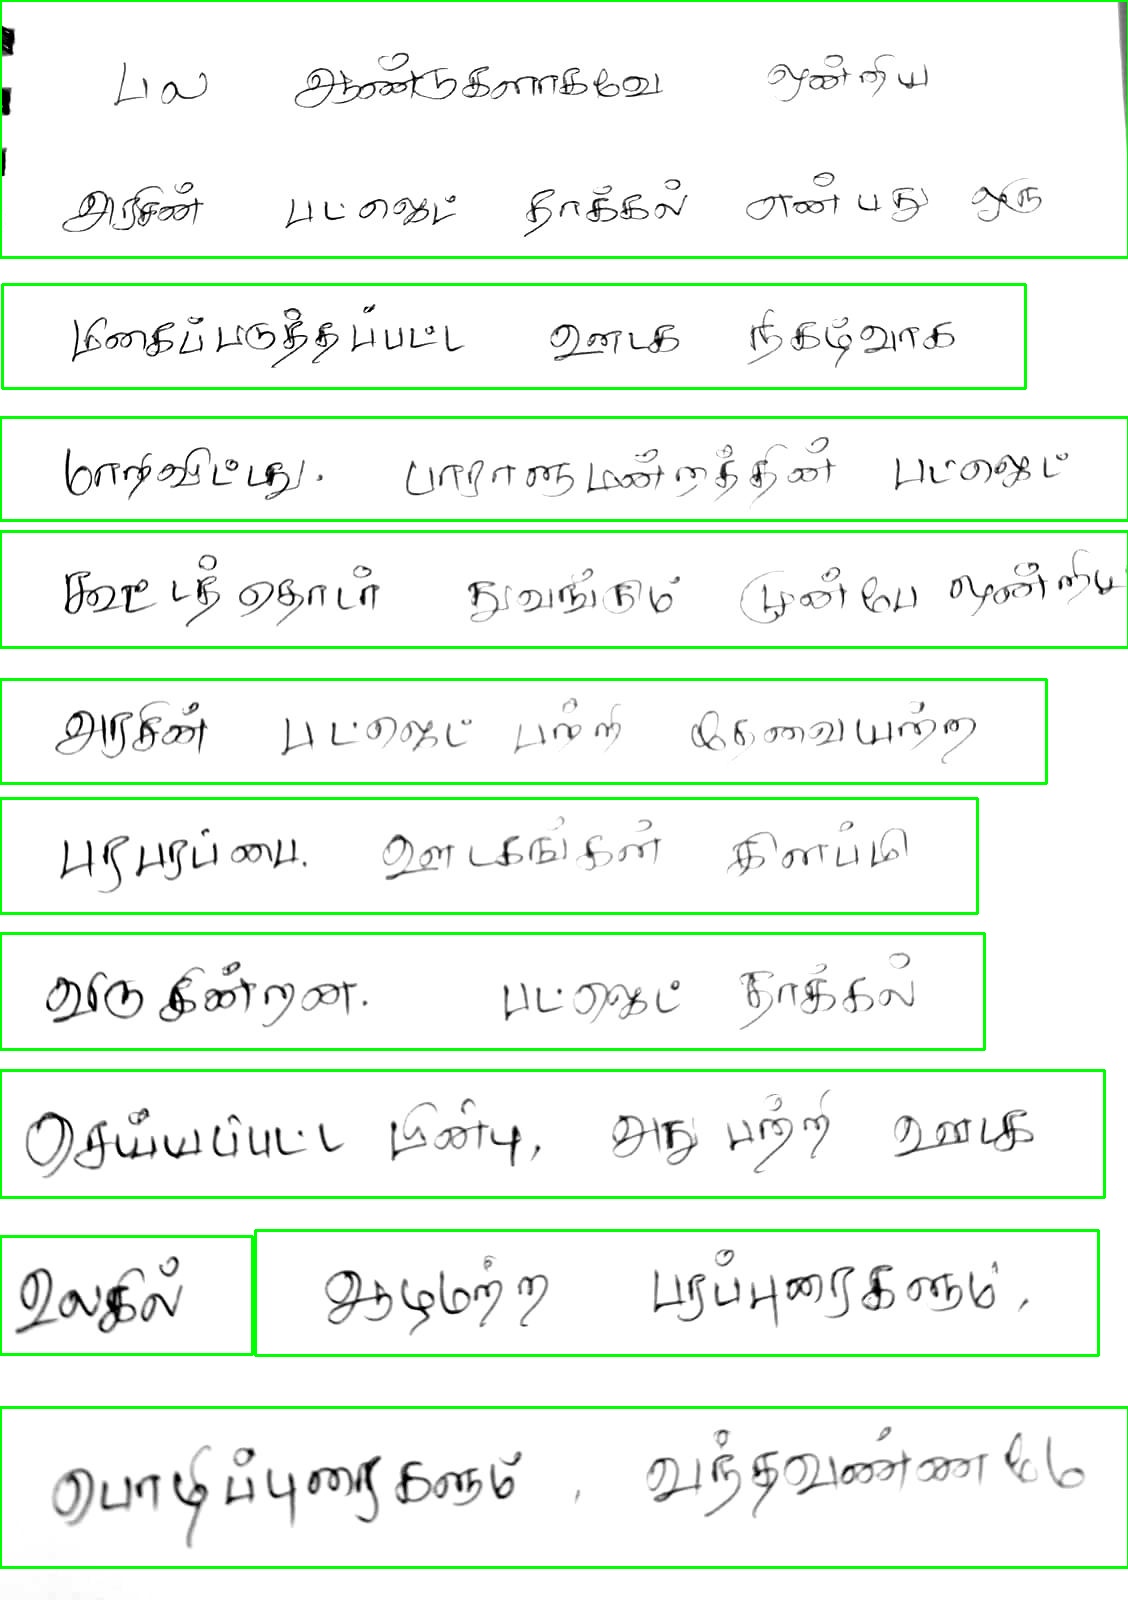 பல ஆண்டுகளாகவே ஒன்றிய
அரசின் பட்ஜெட் தாக்கல் என்பது ஒரு
மிகைப்படுத்தப்பட்ட ஊடக நிகழ்வாக
மாறிவிட்டது. பாராளுமன்றத்தின் பட்ஜெட்
கூட்டத் தொடர் துவங்கும் முன்பே ஒன்றிய
அரசின் பட்ஜெட் பற்றி தேவையற்ற
பரபரப்பை. ஊடகங்கள் கிளப்பி
வருகின்றன. பட்ஜெட் தாக்கல்
செய்யப்பட்ட பின்பு, அது பற்றி ஊடக
உலகில் ஆழமற்ற பரப்புரைகளும்,
பொழிப்புரைகளும் , வந்தவண்ணமே